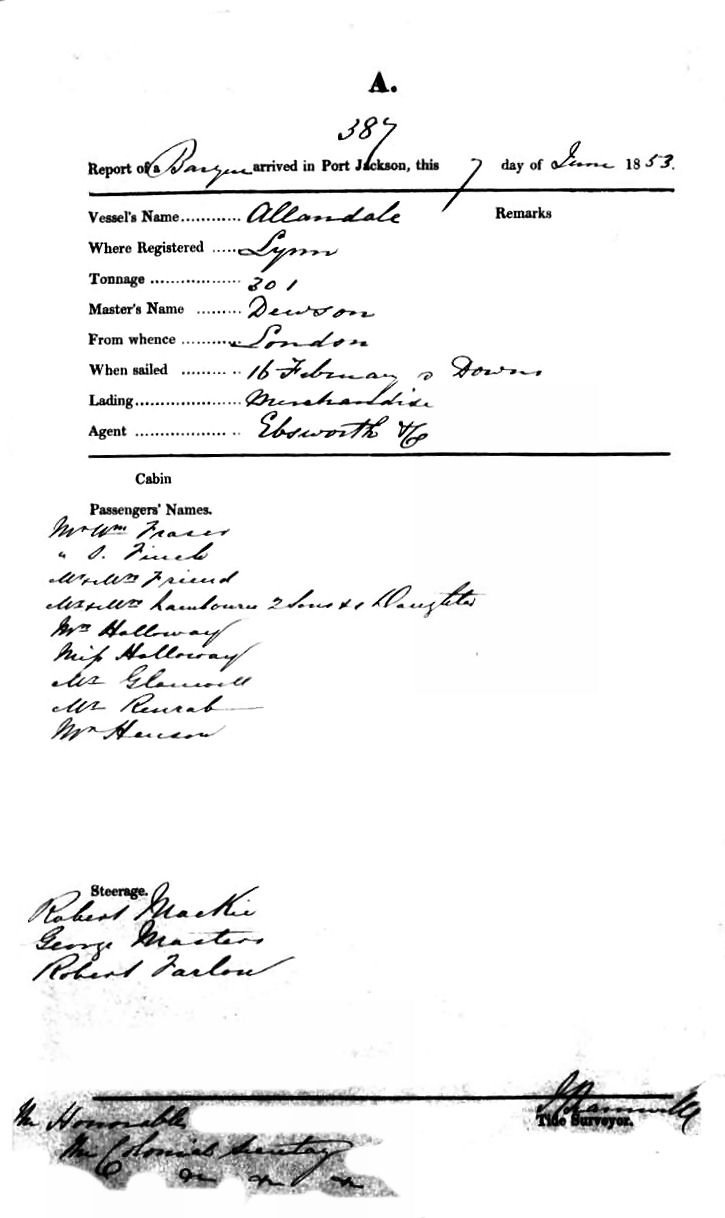 A.
387
Report of a Barque arrived in Port Jackson, this 7 day of June 1853.
Vessel's Name............ Allandale Remarks
Where Registered ..... Lynn
Tonnage .................. 301
Master's Name ......... Dewson
From whence ............ London
When sailed ......... .. 16 February Downs
Lading..................... Merchandise
Agent .................. .. Ebsworth & Co
Cabin
Passengers' Names.
Mr Wm Fraser
" S. Finch
Mr & Mrs Friend
Mr & Mrs Lambourn 2 Sons & 1 Daughter
Mrs Holloway
Miss Holloway
Mr Glanwell
Mr Renrab
Mr Henson
Steerage.
Robert Mackie
George Masters
Robert Farlow
Tide Surveyor.
The Honorable
The Colonial Secretary